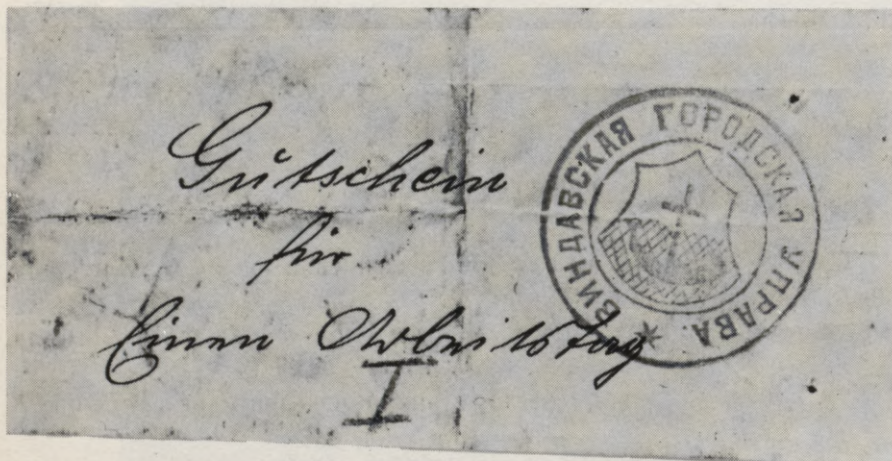 Gutschein
für
Einen Arbeitstag
I
ВИНДАВСКАЯ ГОРОДСКАЯ УПРАВА